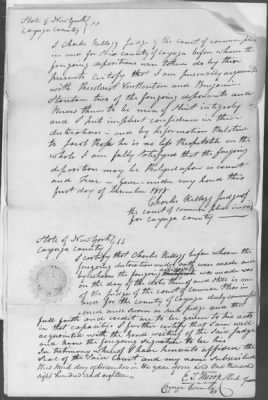 State of New York
Cayuga County } ss
I Charles Kellogg Judge of the court of common pleas
in and for the County of Cayuga before whom the
foregoing depositions were taken do by these
presents certify that I am personally acquainted
with and Benjamin
two of the foregoing deponents and
know them to be men of strict integrity
and I put implicit confidence in their
declarations and by information
to Jacob he is no less respectable on the
whole I am fully satisfied that the foregoing
deposition may be relied upon as correct
and true. Given under my hand this
first day of December 1818
Charles Kellogg Judge of
the court of common pleas in and
for Cayuga county
State of New York
Cayuga County } ss
I certify that Charles Kellogg before whom the
foregoing declaration under oath were made and
by whom the foregoing was made was
on the day of the date thereof and still is one
of the Judges of the court of Common Pleas in
and for the county of Cayuga duly commissioned
and sworn as such Judge and that
full faith and credit are to be given to his acts
in that capacity I further certify that I am well
acquainted with the hand writing of the said Judge
and know the foregoing signature to be his
In testimony whereof I have hereunto affixed the
Seal of the said Court and my name subscribed
this third day of December in the year one thousand
eight hundred and eighteen
E. T. Throop Clerk of
Cayuga County